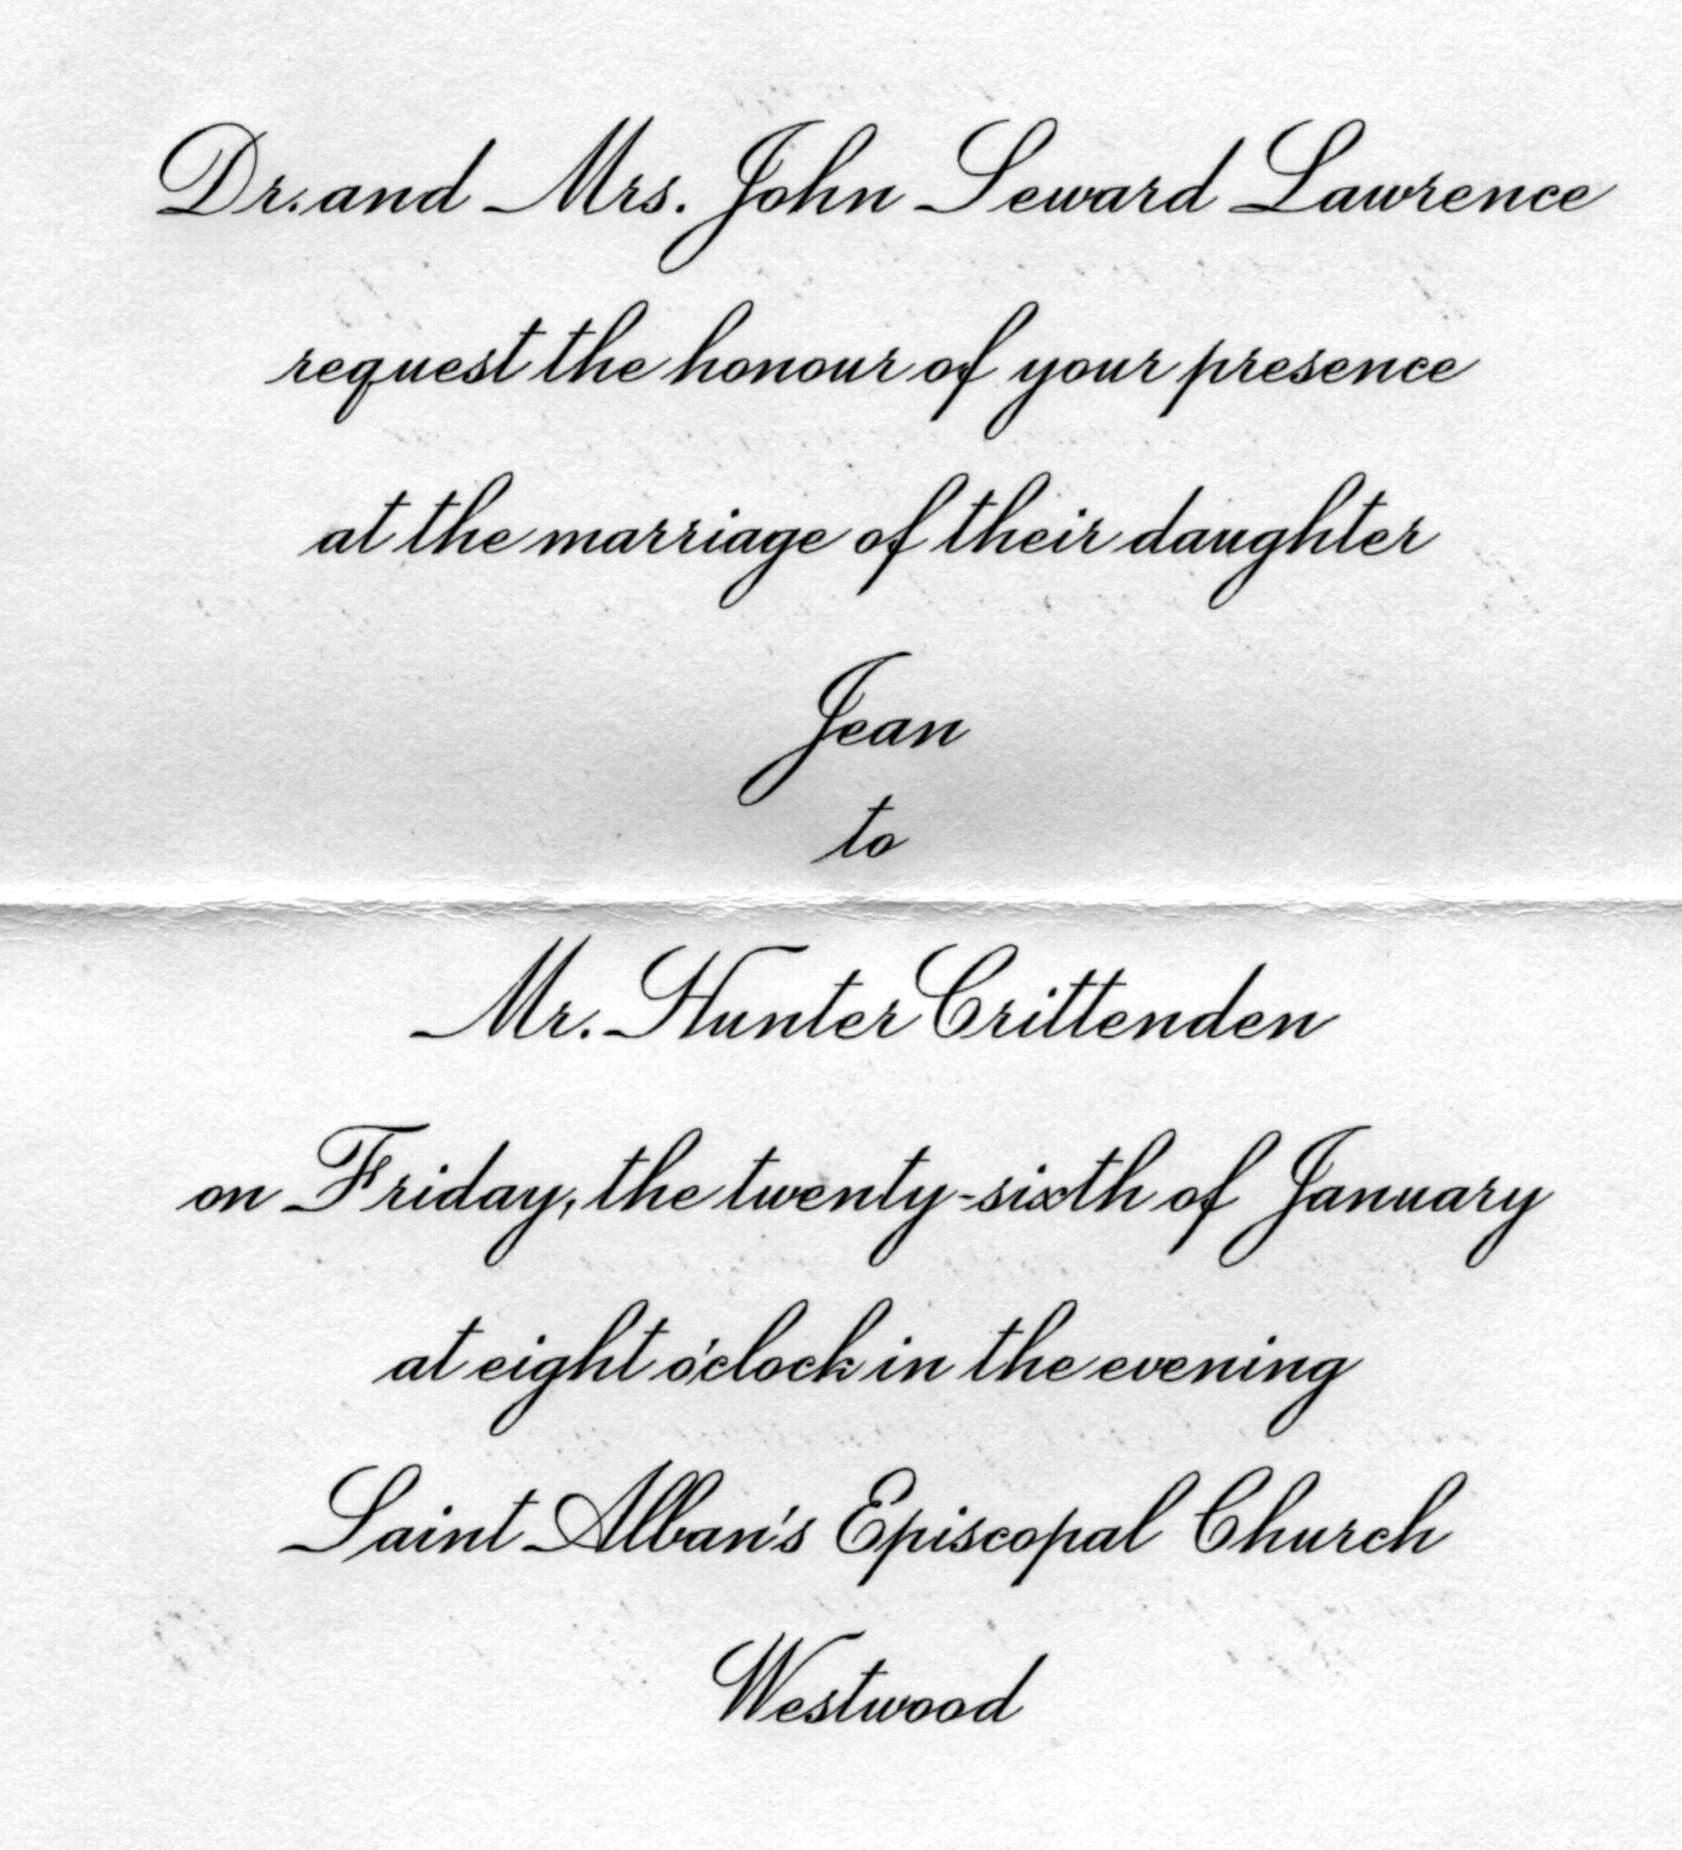 Dr. and Mrs. John Seward Lawrence
request the honour of your presence
at the marriage of their daughter
Jean
to
Mr. Hunter Crittenden
on Friday, the twenty-sixth of January
at eight o'clock in the evening
Saint Alban's Episcopal Church
Westwood